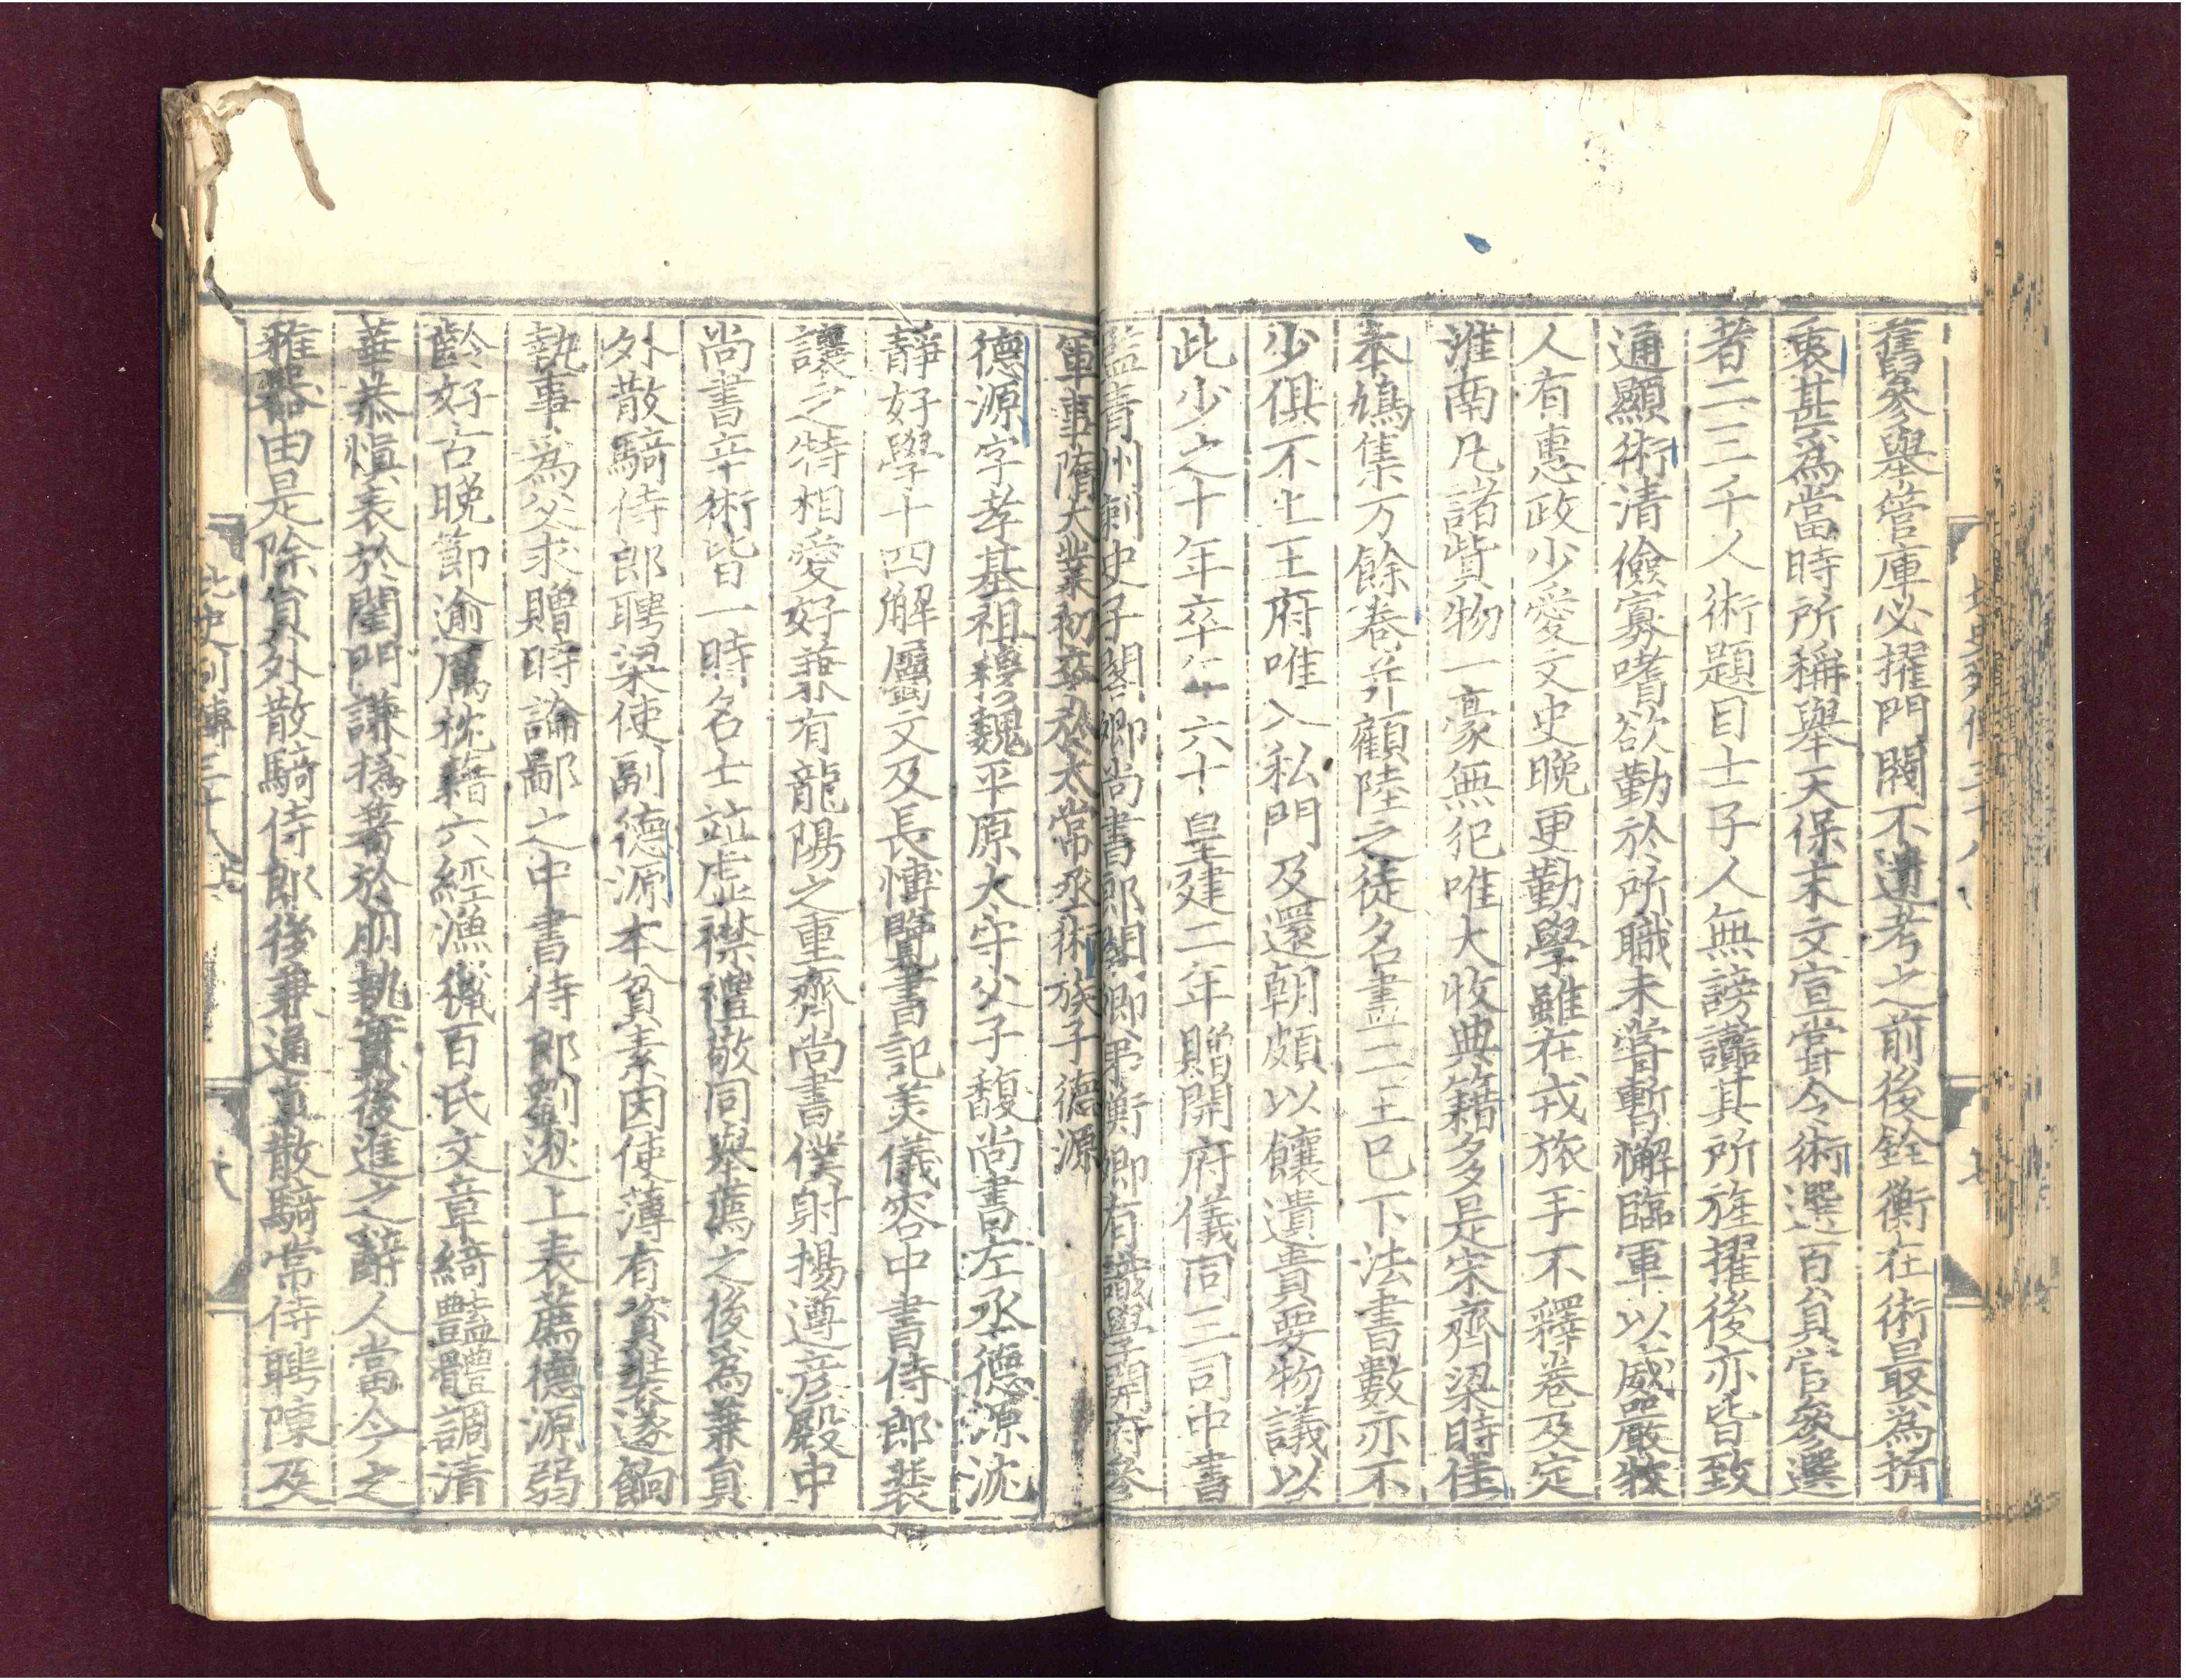 北史列傳三十八 七
舊參舉管庫必擢門閥不遺考之前後銓衡在術最爲折
衷甚爲當時所稱舉天保末文宣嘗令術選百員官參選
者二三千人術題目士子人無謗讟其所旌擢後亦皆致
通顯術清儉寡嗜欲勤於所職未嘗暫懈臨軍以威嚴牧
人有惠政少愛文史晚更勤學雖在戎旅手不釋卷及定
淮南凡諸貲物一豪無犯唯大收典籍多是宋齊梁時佳
本鳩集万餘卷并顧陸之徒名畫二王已下法書數亦不
少俱不上王府唯入私門及還朝頗以饟遺貴要物議以
此少之十年卒年六十皇建二年贈開府儀同三司中書
監青州刺史子閣卿尚書郎閣卿弟衡卿有識學開府參
軍事隋大業初卒於太常丞術族子德源
德源字孝基祖穆魏平原太守父子馥尚書左丞德源沈
靜好學十四解屬文及長博覽書記美儀容中書侍郎裴
讓之特相愛好兼有龍陽之重齊尚書僕射揚遵彦殿中
尚書辛術皆一時名士並虛襟禮敬同舉薦之後爲兼員
外散騎侍郎聘梁使副德源本貧素因使薄有資裝遂餉
執事爲父求贈時論鄙之中書侍郎劉逖上表薦德源弱
齡好古晚節逾厲枕籍六經漁獵百氏文章綺豔體調清
華恭慎表於閨門謙撝著於朋執實後進之辭人當今之
雅器由是除員外散騎侍郎後兼通直散騎常侍聘陳及
北史列傳三十八上 八